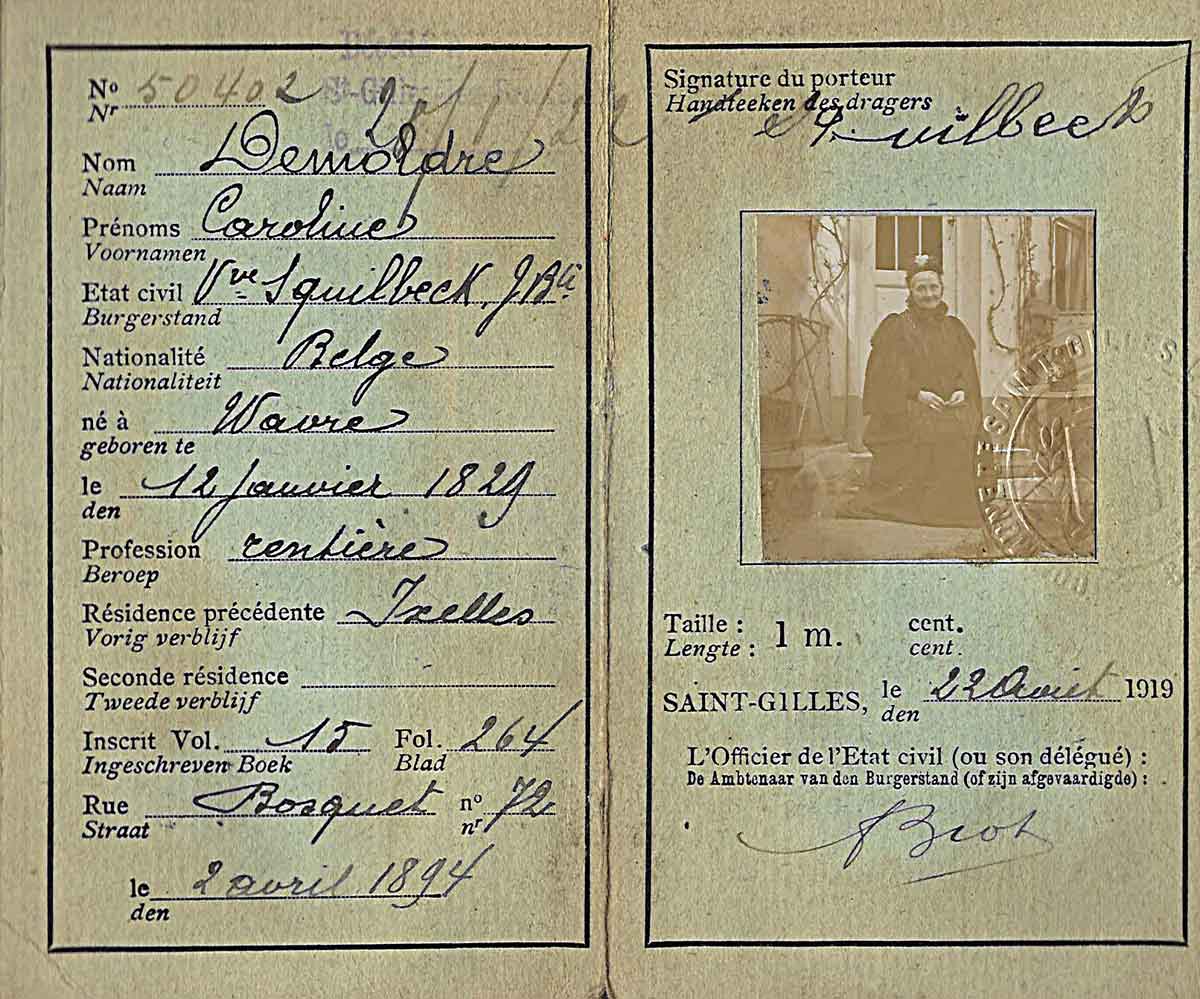 No 50402
Nr
Nom Demoldre
Naam
Prénoms Caroline
Voornamen
Etat civil Vve Squilbeck, J Bte
Burgerstand
Nationalité Belge
Nationaliteit
né à Wavre
geboren te
le 12 Janvier 1829
den
Profession rentière
Beroep
Résidence précédente Ixelles
Vorig verblijf
Seconde résidence
Tweede verblijf
Inscrit Vol. 15 Fol. 264
Ingeschreven Boek Blad
Rue Bosquet no 72
Straat nr
le 2 avril 1894
den
Signature du porteur
Handteeken des dragers
Squilbeck
SAINT-GILLES
Taille : 1 m. cent.
Lengte : cent.
SAINT-GILLES, le 22 Avril 1919
den
L'Officier de l'Etat civil (ou son délégué) :
De Ambtenaar van den Burgerstand (of zijn afgevaardigde) :
Brot